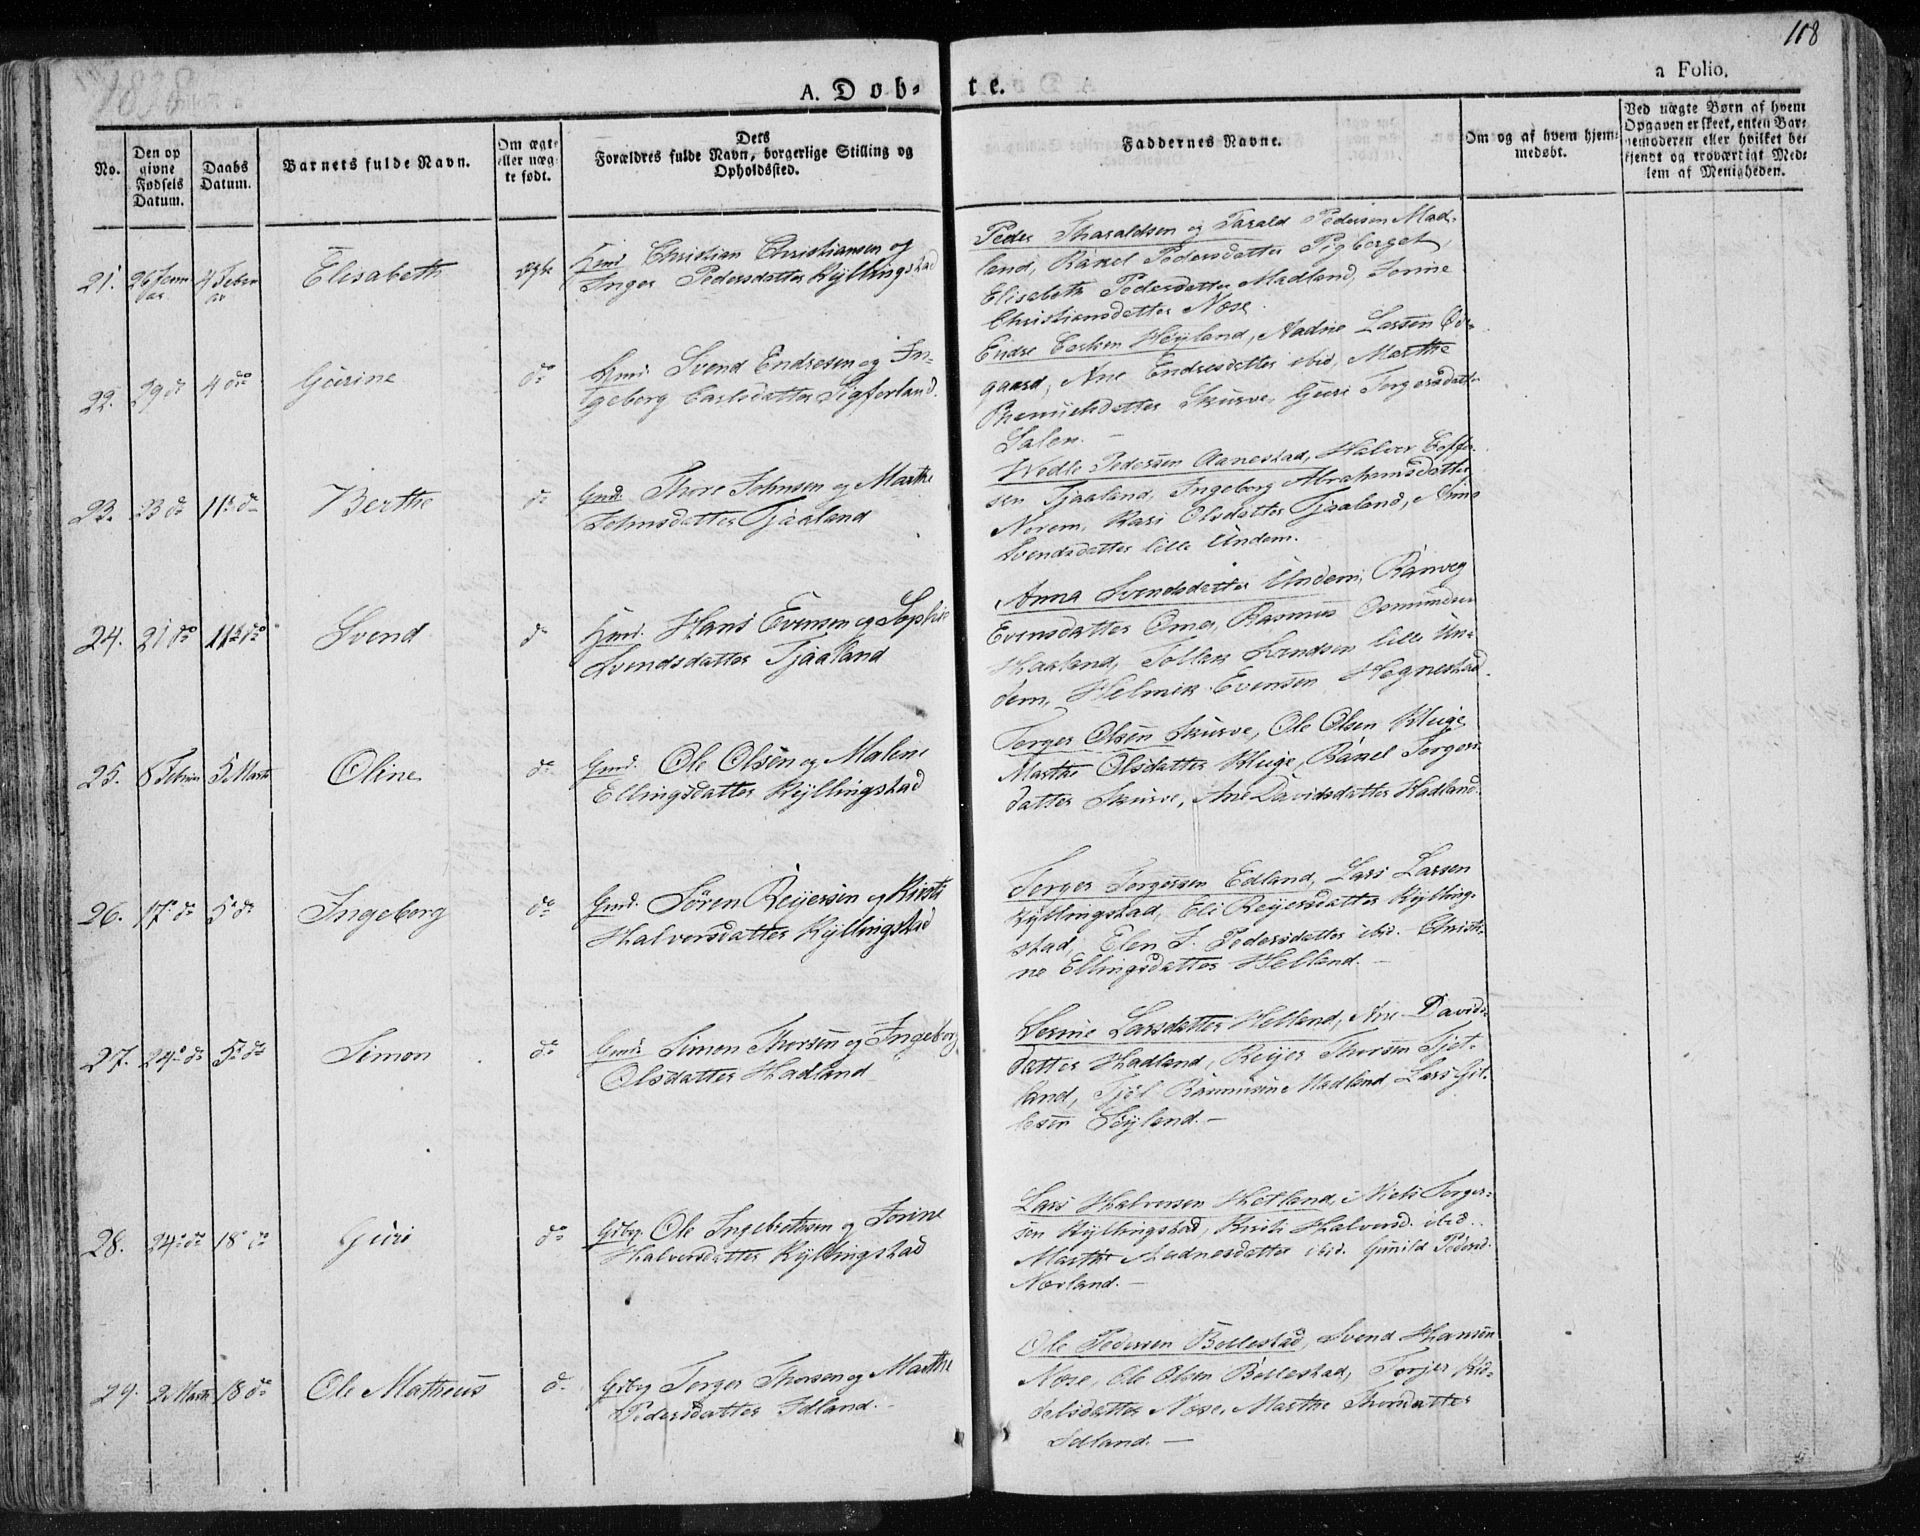 1838
108
A. Døb-
te.
a Folio.
No.
Den op
givne
Fødsels
Datum.
Daabs
Datum.
Barnets fulde Navn.
Om ægte
eller uæg-
te født.
Dets
Forældres fulde Navn, borgerlige Stilling og
Opholdssted.
Faddernes Navne.
Om og af hvem hjem-
medøbt.
Ved uægte Børn af hvem
Opgaven er skeet, enten Bar-
nemoderen eller hvilket be-
kjendt og troværdigt Med-
lem af Menigheden.
21.
26 Janu
ar
4 Febru
ar
Elisabeth
ægte
Christian Christiansen og
Inger Pedersdatter Kyllingstad
Peder Tharaldsen og Tarald Pedersen Mad-
land, Rakel Pedersdatter Pigberget
Elisabeth Pedersdatter Madland, Jorine
Christiansdatter Næse.
22.
29 do
4 do
Gurine
do
Svend Endresen og In-
geborg Carlsdatter Sigforland.
Endre Høyland, Aadne Larsen
gaard, Ane Endresdatter ibid, Marthe
Skurve, Guri Torgersdatter
Salen. -
23.
23 do
11te do
Berthe
do
Gmd. Thore Johnsen og Marthe
Johnsdatter Tjaaland
Pedersen Aanestad, Halvor
sen Tjaaland, Ingeborg Abrahamsdatter
Norem, Kari Olsdatter Tjaaland, Anna
Svendsdatter lille Undem.
24.
21 do
11te do
Svend
do
Hans Evensen og Sophie
Svendsdatter Tjaaland
Anna Svendsdatter Undem, Ranveg
Evensdatter Oma, Rasmus Osmundsen
Haaland, Tollak Svendsen lille Un-
dem, Helmik Evensen Hognestad.
25.
8 Februar
5 Marts
Oline
do
Gmd. Ole Olsen og Malene
Ellingsdatter Kyllingstad
Torger Olsen Skurve, Ole Olsen Kluge
Marthe Olsdatter Kluge, Rakel Torgers-
datter Skurve, Ane Davidsdatter Hadland.
26.
17 do
5 do
Ingeborg
do
Gmd. Søren Reyersen og Kirsti
Halversdatter Kyllingstad
Torger Torgersen Edland, Lars Larsen
Kyllingstad, Eli Reyersdatter Kylling-
stad, Elen J. Pedersdatter ibid. Christi-
ne Ellingsdatter Helland. -
27.
24 do
5 do
Simon
do
Gmd. Simon Thorsen og Ingeborg
Olsdatter Hadland
Serine Larsdatter Helland, Ane Davids-
datter Hadland, Reyer Thorsen Tjet-
land, Rasmusine Madland Lars Gil-
lesen Søyland. -
28.
24 do
18 do
Guri
do
Gjbg. Ole Ingebrethsen og Jorine
Halversdatter Kyllingstad
Lars Halversen Hetland, Niels Torger-
sen Kyllingstad, Kirsti Halversd. ibid.
Marthe Aadnesdatter ibid. Gunild Pedersd.
Norland. -
29.
2 Marts
18 do
Ole Matheus
do
Gjbg Torger Thorsen og Marthe
Pedersdatter Idland. -
Ole Pedersen Bollestad, Svend Hansen
Næse, Ole Olsen Bollestad, Torjer
datter Næse, Marthe Thorsdatter
Idland. -